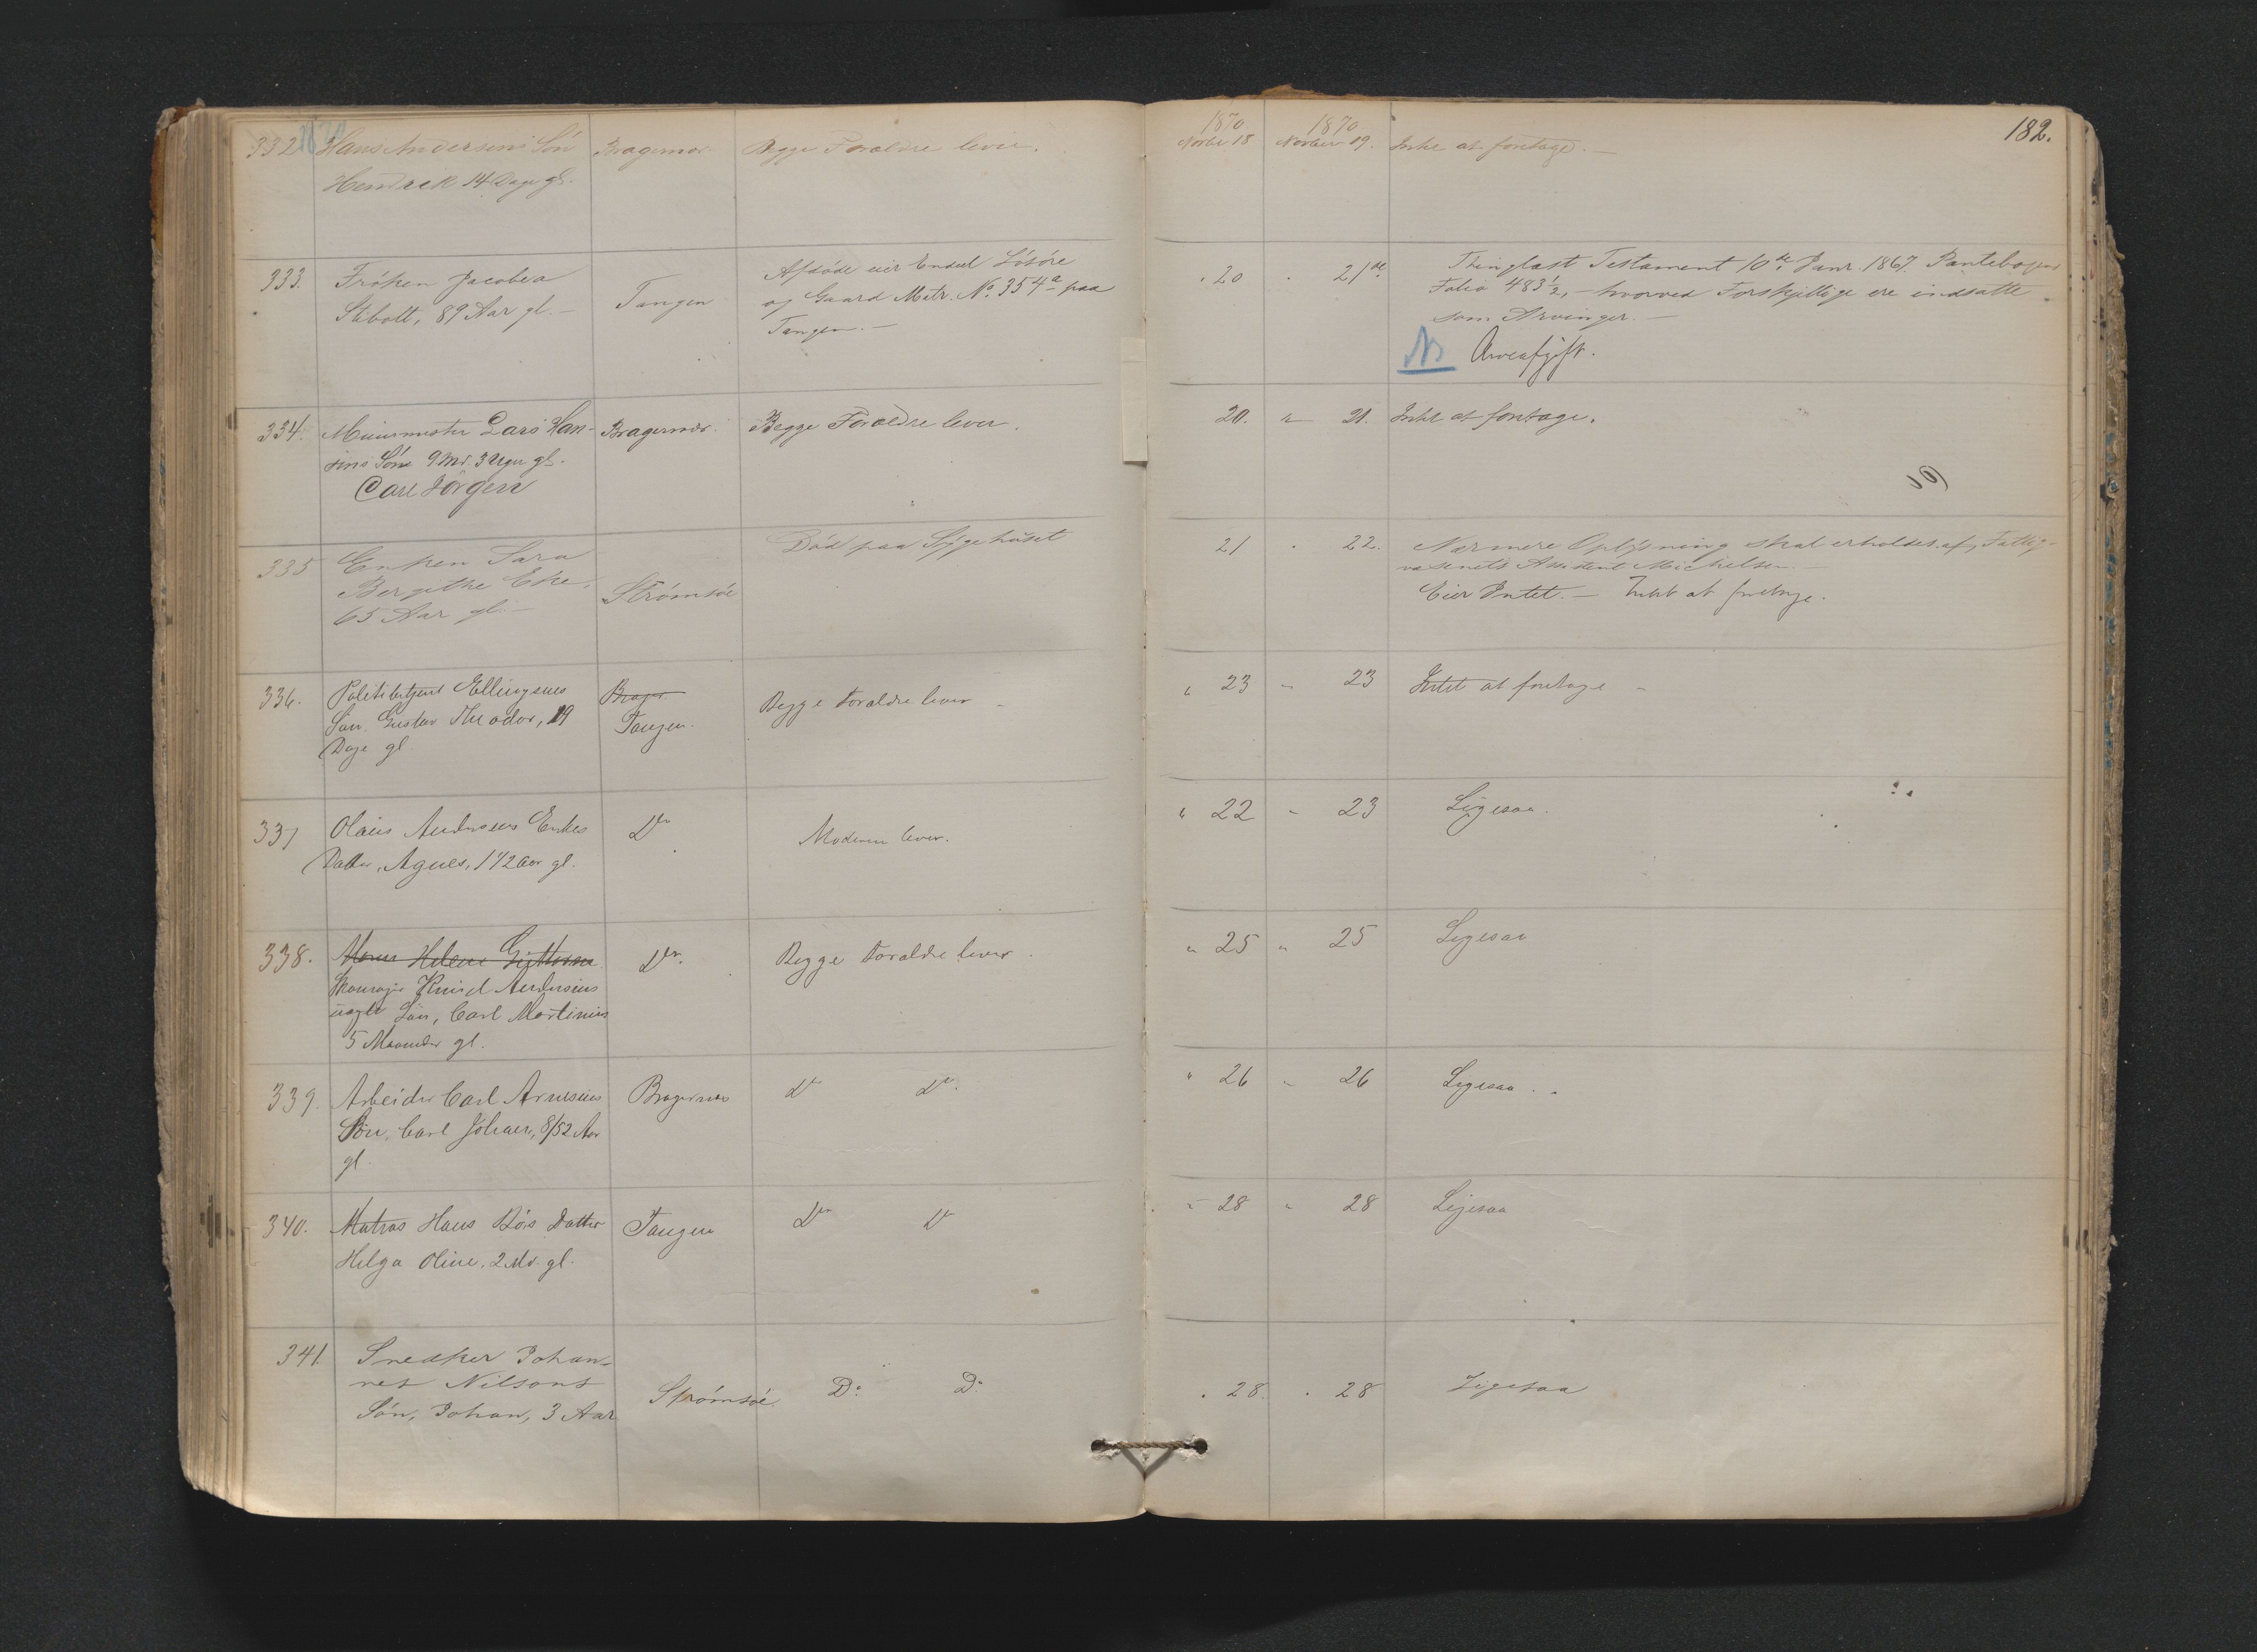 182.
1870
1870
332 Hans Andersens Sön Bragernæs Begge Forældre lever. Novbr 18 Novber 19. Intet at foretage. —
Hendrik 14 Dage gl.
333. Fröken Jacobea
Stibolt, 89 Aar gl. —
Tangen
Afdöde eier Endeel Lösöre
og Gaard Matr. No. 354a paa
Tangen. —
" 20 " 21de
Thinglæst Testament 10de Janr. 1867. Pantebogens
Folio 483½, — hvorved Forskjellige ere indsatte
som Arvinger. —
NB Arveafgift.
334. Muurmester Lars Han-
sens Sön 9 Md. 3 Uger gl.
Carl Jörgen
Bragernæs Begge Forældre lever. 20. " 21. Intet at foretage.
335 Enken Sara
Bergithe Eke,
65 Aar gl. —
Strömsöe
Död paa Sygehuset
21 " 22. Nærmere Oplysning skal erholdes af Fattig-
væsenets Assistent Michelsen. —
Eier Intet. — Intet at foretage.
336. Politibetjent Ellingsens
Søn Gustav Theodor, 19
Dage gl.
Brager
Tangen.
Begge Forældre lever — " 23 " 23 Intet at foretage —
337 Olaus Andersens Enkes
Datter, Agnes, 1 1/2 Aar gl.
Do Moderen lever. " 22 " 23 Ligesaa.
338. Helene
Knud Andersens
uægte Søn, Carl Martinius
5 Maaneder gl.
Do. Begge Forældre lever. " 25 " 25 Ligesaa
339. Arbeider Carl Arnesens
Søn, Carl Johan, 8/52 Aar
gl.
Bragernæs Do Do. " 26 " 26 Ligesaa.
340. Matros Hans Bös Datter
Helga Oline, 2 Md. gl.
Tangen Do Do " 28 " 28 Ligesaa
341. Snedker Johan-
nes Nilsons
Sön, Johan, 3 Aar
Strömsöe. Do: Do: " 28. " 28 Ligesaa